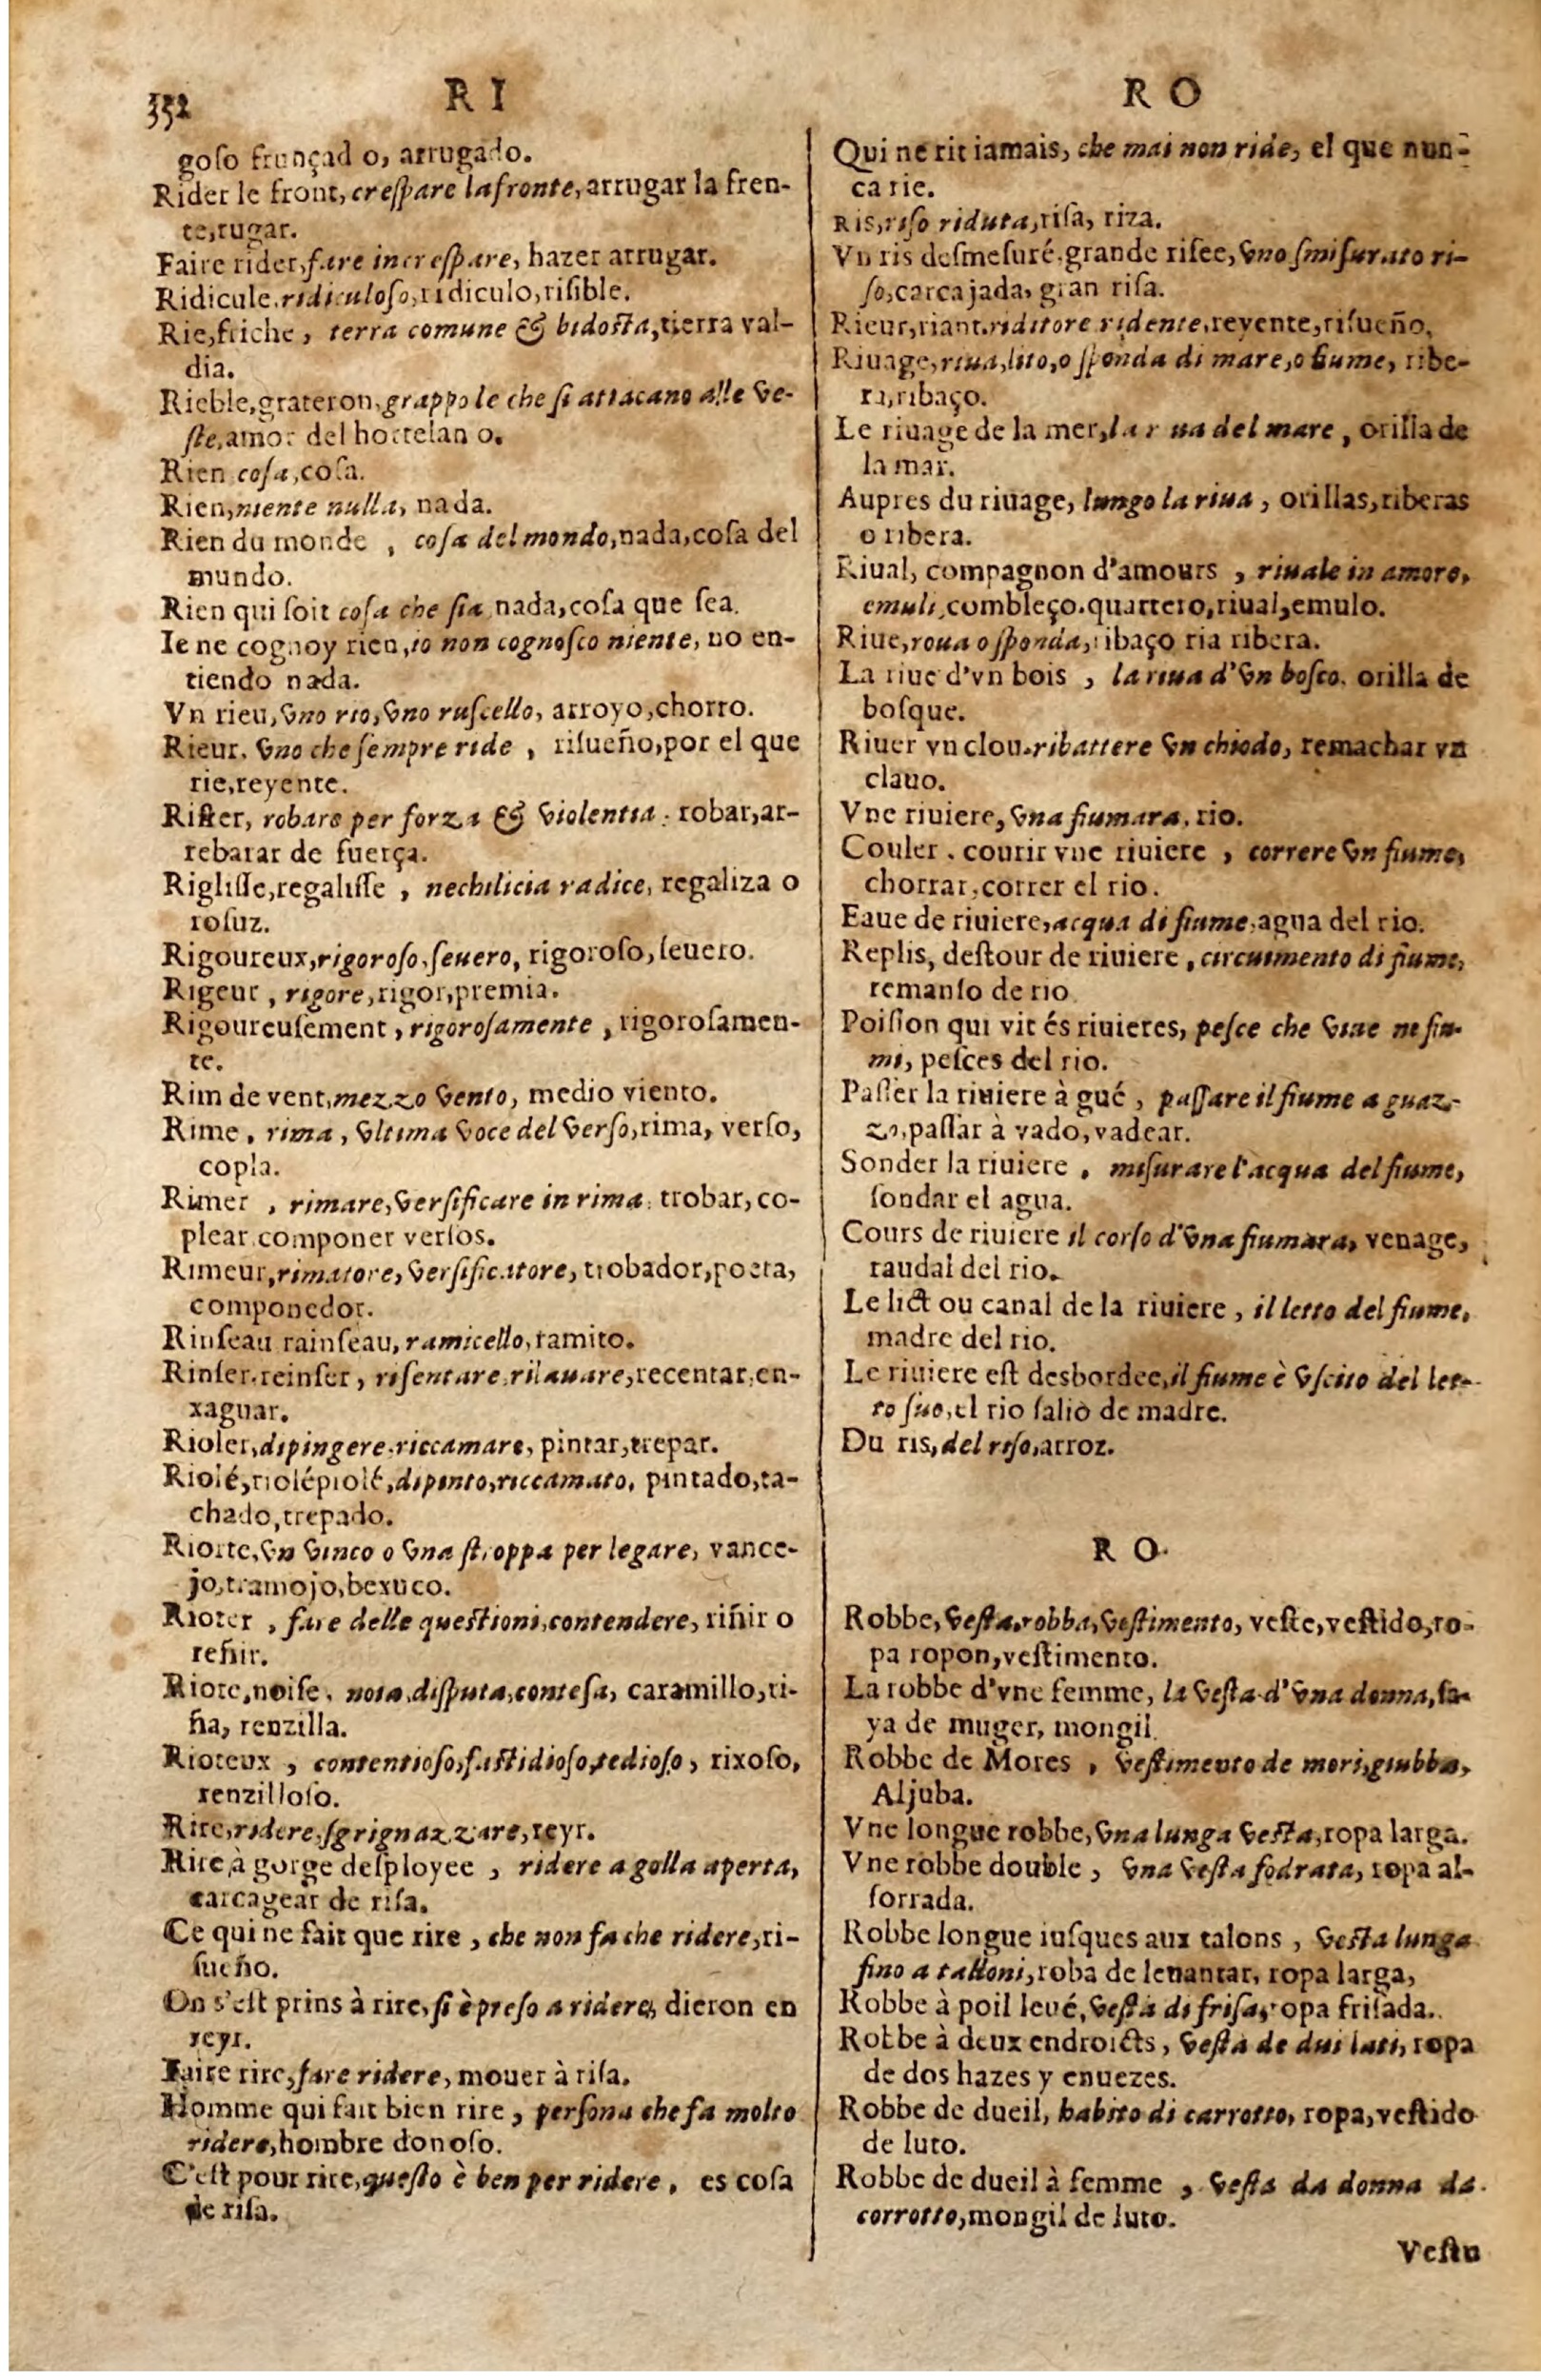 352
R I
goſo frunçad o, arrugado.
Rider le front, creſpare la fronte, arrugar la fren-
te, rugar.
Faire rider, fare increſpare, hazer arrugar.
Ridicule, ridiculoſo, ridiculo, riſible.
Rie, friche, terra comune & bidoſta, tierra val-
dia.
Rieble, grateron, grappole che ſi attacano alle ve-
ſte, amor del hortelan o.
Rien coſa, coſa.
Rien, niente nulla, nada.
Rien du monde, coſa del mondo, nada, coſa del
mundo.
Rien qui ſoit coſa che ſia nada, coſa que ſea.
Ie ne cognoy rien, io non cognoſco niente, no en-
tiendo nada.
Vn rieu, vno rio, vno ruſcello, arroyo, chorro.
Rieur. vno che ſempre ride, riſueño, por el que
rie, reyente.
Rifler, robare per forza & violentia, robar, ar-
rebatar de fuerça.
Rigliſſe, regaliſſe, nechilicia radice, regaliza o
roſuz.
Rigoureux, rigoroſo, ſeuero, rigoroſo, ſeuero.
Rigeur, rigore, rigor, premia.
Rigoureuſement, rigoroſamente, rigoroſamen-
te.
Rim de vent, mezzo vento, medio viento.
Rime, rima, vltima voce del verſo, rima, verſo,
copla.
Rimer, rimare, verſificare in rima, trobar, co-
plear. componer verſos.
Rimeur, rimatore, verſificatore, trobador, poeta,
componedor.
Rinſeau rainſeau, ramicello, ramito.
Rinſer, reinſer, riſentare, rilauare, recentar, en-
xaguar.
Rioler, dipingere, riccamare, pintar, trepar.
Riolé, riolépiolé, dipinto, riccamato, pintado, ta-
chado, trepado.
Riorte, vn vinco o vna ſtroppa per legare, vance-
jo, tramojo, bexuco.
Rioter, fare delle queſtioni, contendere, riñir o
reñir.
Riote, noiſe, noia, diſputa, conteſa, caramillo, ri-
ña, renzilla.
Rioteux, contentioſo, faſtidioſo, tedioſo, rixoſo,
renzilloſo.
Rire, ridere, ſgrignazzare, reyr.
Rire à gorge deſployee, ridere a golla aperta,
carcagear de riſa.
Ce qui ne fait que rire, che non fa che ridere, ri-
ſueño.
On s'eſt prins à rire, ſi è preſo a ridere, dieron en
reyr.
Faire rire, fare ridere, mouer à riſa.
Homme qui fait bien rire, perſona che fa molto
ridere, hombre donoſo.
C'eſt pour rire, queſto è ben per ridere, es coſa
de riſa.
R O
Qui ne rit iamais, che mai non ride, el que nun-
ca rie.
Ris, riſo riduta, riſa, riza.
Vn ris deſmeſuré, grande riſee, vno ſmiſurato ri-
ſo, carcajada, gran riſa.
Rieur, riant, riditore ridente, reyente, riſueño.
Riuage, riua, lito, o ſponda di mare, o fiume, ribe-
ra, ribaço.
Le riuage de la mer, la r ua del mare, orilla de
la mar.
Aupres du riuage, lungo la riua, orillas, riberas
o ribera.
Riual, compagnon d'amours, riuale in amore,
emuli, combleço. quartero, riual, emulo.
Riue, roua o ſponda, ribaço ria ribera.
La riue d'vn bois, la riua d'vn boſco. orilla de
boſque.
Riuer vn clou. ribattere vn chiodo, remachar vn
clauo.
Vne riuiere, vna fiumara, rio.
Couler, courir vne riuiere, correre vn fiume,
chorrar, correr el rio.
Eaue de riuiere, acqua di fiume, agua del rio.
Replis, deſtour de riuiere, circuimento di fiume,
remanſo de rio
Poiſſon qui vit és riuieres, peſce che viue ne fiu-
mi, peſces del rio.
Paſſer la riuiere à gué, paſſare il fiume a guaz-
zo, paſſar à vado, vadear.
Sonder la riuiere, miſurare l'acqua del fiume,
ſondar el agua.
Cours de riuiere il corſo d'vna fiumara, venage,
raudal del rio.
Le lict ou canal de la riuiere, il letto del fiume,
madre del rio.
Le riuiere eſt desbordee, il fiume è vſcito del let-
to ſuo, el rio ſaliò de madre.
Du ris, del riſo, arroz.
R O.
Robbe, veſta, robba, veſtimento, veſte, veſtido, ro-
pa ropon, veſtimento.
La robbe d'vne femme, la veſta d'vna donna, ſa-
ya de muger, mongil
Robbe de Mores, veſtimento de mori, giubba,
Aljuba.
Vne longue robbe, vna lunga veſta, ropa larga.
Vne robbe double, vna veſta fodrata, ropa al-
forrada.
Robbe longue iuſques aux talons, veſta lunga
fino a talloni, roba de leuantar, ropa larga,
Robbe à poil leué, veſta di friſa, ropa friſada.
Robbe à deux endroicts, veſta de dui lati, ropa
de dos hazes y enuezes.
Robbe de dueil, habito di carrotto, ropa, veſtido
de luto.
Robbe de dueil à femme, veſta da donna da
corrotto, mongil de luto.
Veſtu